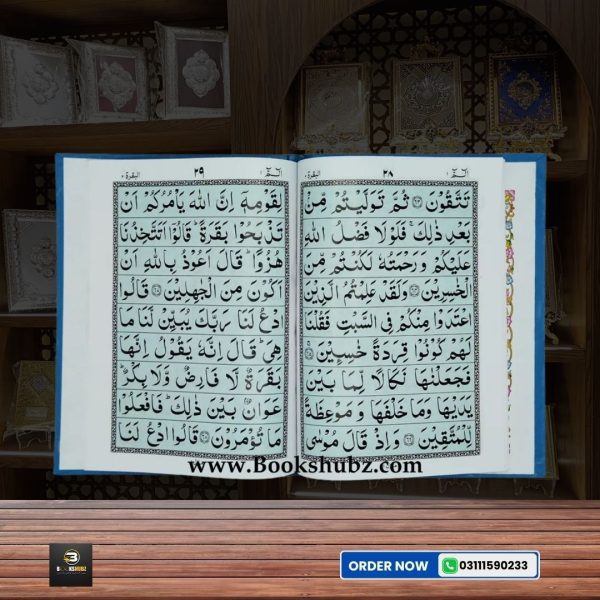 البقرة ٢
٢٨
الٓمّٓ ١
تَتَّقُوْنَ ۝٦٣ ثُمَّ تَوَلَّيْتُمْ مِّنْۢ
بَعْدِ ذٰلِكَ ۚ فَلَوْلَا فَضْلُ اللّٰهِ
عَلَيْكُمْ وَرَحْمَتُهٗ لَكُنْتُمْ مِّنَ
الْخٰسِرِيْنَ ۝٦٤ وَلَقَدْ عَلِمْتُمُ الَّذِيْنَ
اعْتَدَوْا مِنْكُمْ فِى السَّبْتِ فَقُلْنَا
لَهُمْ كُوْنُوْا قِرَدَةً خٰسِـِٕيْنَ ۝٦٥
فَجَعَلْنٰهَا نَكَالًا لِّمَا بَيْنَ
يَدَيْهَا وَمَا خَلْفَهَا وَ مَوْعِظَةً
لِّلْمُتَّقِيْنَ ۝٦٦ وَاِذْ قَالَ مُوْسٰى
البقرة ٢
٢٩
الٓمّٓ ١
لِقَوْمِهٖٓ اِنَّ اللّٰهَ يَاْمُرُكُمْ اَنْ
تَذْبَحُوْا بَقَرَةً ؕ قَالُوْٓا اَتَتَّخِذُنَا
هُزُوًا ؕ قَالَ اَعُوْذُ بِاللّٰهِ اَنْ
اَكُوْنَ مِنَ الْجٰهِلِيْنَ ۝٦٧ قَالُوا
ادْعُ لَنَا رَبَّكَ يُبَيِّنْ لَّنَا مَا
هِىَ ؕ قَالَ اِنَّهٗ يَقُوْلُ اِنَّهَا
بَقَرَةٌ لَّا فَارِضٌ وَّلَا بِكْرٌ ؕ
عَوَانٌۢ بَيْنَ ذٰلِكَ ؕ فَافْعَلُوْا
مَا تُؤْمَرُوْنَ ۝٦٨ قَالُوا ادْعُ لَنَا
www.Bookshubz.com
B
BOOKSHUBZ
ORDER NOW
03111590233